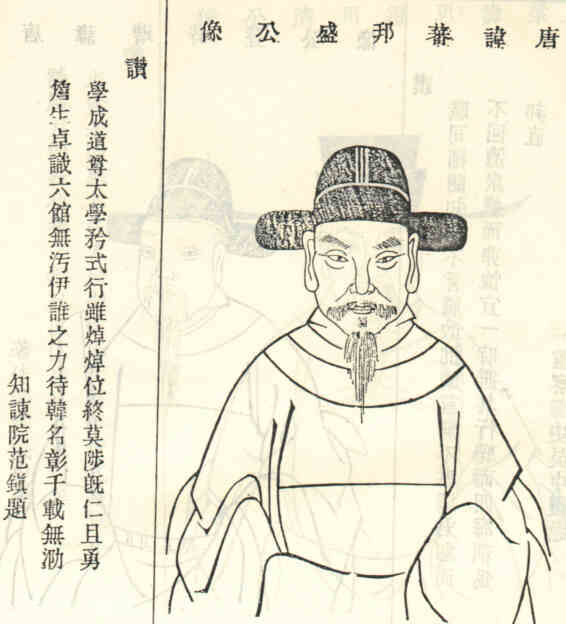 唐諱蕃邦盛公像
讚
學成道尊太學矜式行雖焯焯位終莫陟旣仁且勇
詹生卓識六館無汚伊誰之力待韓名彰千載無泐
知諫院范鎭題